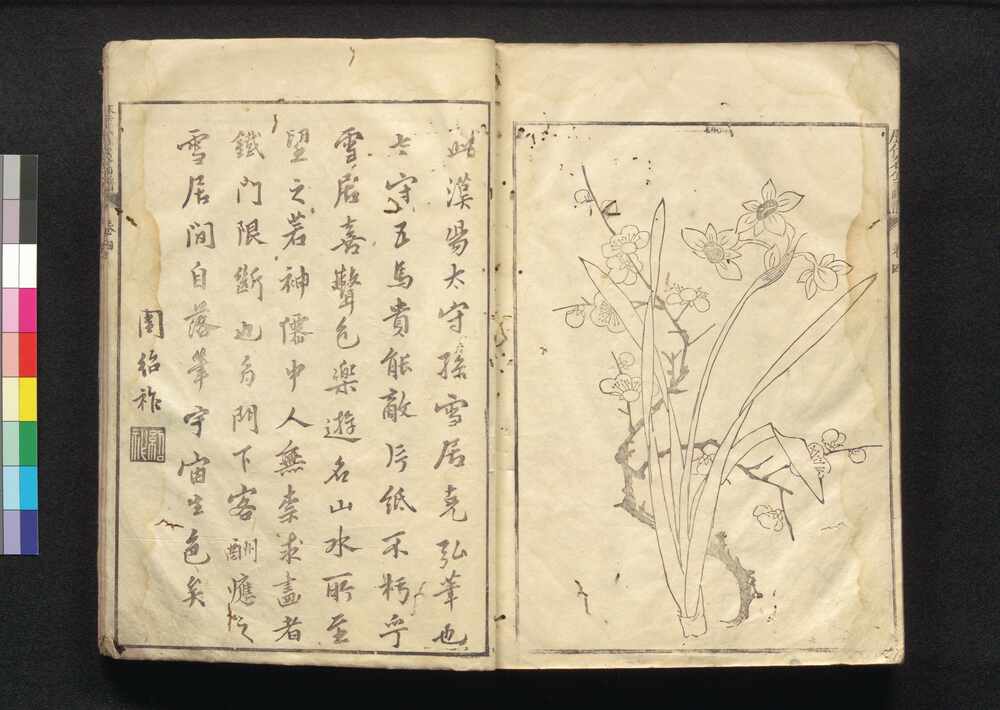 此漢陽太守孫雪居克弘筆也
太守五馬貴能敵片紙不朽乎
雪居喜聲色樂遊名山水所至
望之若神僊中人無柰求畫者
鐵門限斷也方門下客酬應之
雪居間自落筆宇宙生色矣
紹祚